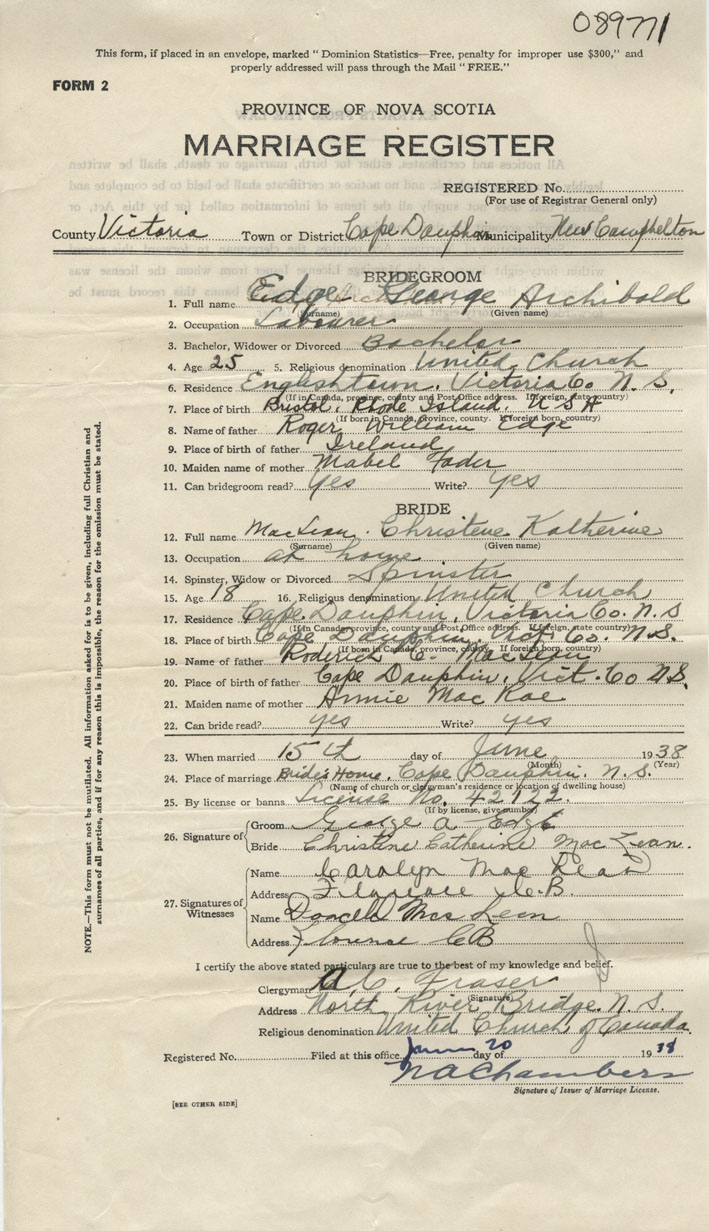 089771
This form, if placed in an envelope, marked "Dominion Statistics—Free, penalty for improper use $300," and
properly addressed will pass through the Mail "FREE."
FORM 2
PROVINCE OF NOVA SCOTIA
MARRIAGE REGISTER
REGISTERED No.
(For use of Registrar General only)
County Victoria Town or District Cape Dauphin Municipality New Campbelton
BRIDEGROOM
1. Full name Edge George Archibald
(Surname) (Given name)
2. Occupation Labourer
3. Bachelor, Widower or Divorced Bachelor
4. Age 25 5. Religious denomination United Church
6. Residence Englishtown, Victoria Co. N. S.
(If in Canada, province, county and Post Office address. If foreign, state country)
7. Place of birth Bristol, Rhode Island, U S A
(If born in Canada, province, county. If foreign born, country)
8. Name of father Roger William Edge
9. Place of birth of father Ireland
10. Maiden name of mother Mabel Fader
11. Can bridegroom read? Yes Write? Yes
BRIDE
12. Full name MacLean. Christene Katherine
(Surname) (Given name)
13. Occupation at home
14. Spinster, Widow or Divorced Spinster
15. Age 18 16. Religious denomination United Church
17. Residence Cape Dauphin, Victoria Co. N. S
(If in Canada, province, county and Post Office address. If foreign, state country)
18. Place of birth Cape Dauphin, Vict. Co. N. S.
(If born in Canada, province, county. If foreign born, country)
19. Name of father Roderick C. MacLean
20. Place of birth of father Cape Dauphin, Vict. Co N.S.
21. Maiden name of mother Annie Mac Rae
22. Can bride read? yes Write? yes
23. When married 15th day of June 1938
(Month) (Year)
24. Place of marriage Bride's Home, Cape Dauphin. N. S.
(Name of church or clergyman's residence or location of dwelling house)
25. By license or banns License No. 42122.
(If by license, give number)
26. Signature of Groom George A Edge
Bride Christine Catherine Mac Lean.
27. Signatures of Witnesses Name Carolyn Mac Lean
Address Florence C.B.
Name Donald Mac Lean
Address Florence C B
I certify the above stated particulars are true to the best of my knowledge and belief.
Clergyman A. C. Fraser
(Signature)
Address North River Bridge. N. S.
Religious denomination United Church of Canada.
Registered No. Filed at this office June 20 day of 1938
N A Chambers
Signature of Issuer of Marriage License.
[SEE OTHER SIDE]
NOTE.—This form must not be mutilated. All information asked for is to be given, including full Christian and
surnames of all parties, and if for any reason this is impossible, the reason for the omission must be stated.